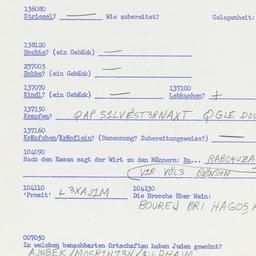 136080
Striezel? — Wie zubereitet? Gelegenheit:
138120
Bochts? (ein Gebäck) —
237003
Bobbe? (ein Gebäck) —
137070 137100
Kindl? (ein Gebäck) — Lebkuchen? +
137150
Krapfen? QAP S1LVEST3RNAXT QGLE DOU
137160
Kräpfchen/Kräpflein? (Benennung? Zubereitungsweise?) —
104090
Nach dem Essen sagt der Wirt zu den Männern:
VIR VÖL3 BENSƏN
104110 104130
'Prosit' L3XAJ1M Die Broche über Wein:
BOUREJ BRI HAGO5A
007050
In welchen benachbarten Ortschaften haben Juden gewohnt?